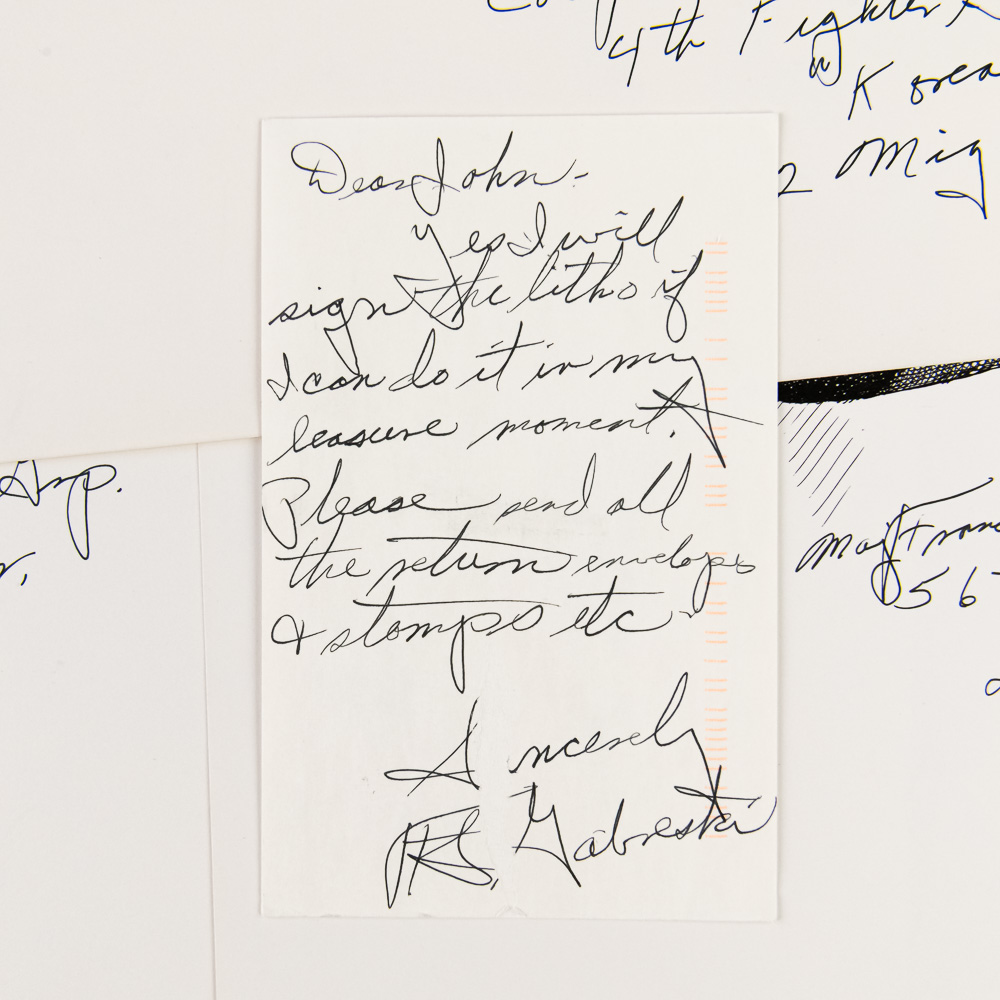 4th Fighter
Korea
2 Mig
Dear John -
Yes I will
sign the litho if
I can do it in my
leasure moment.
Please send all
the return envelops
& stamps etc -
Sincerely
F.S. Gabreski
Grp.
56